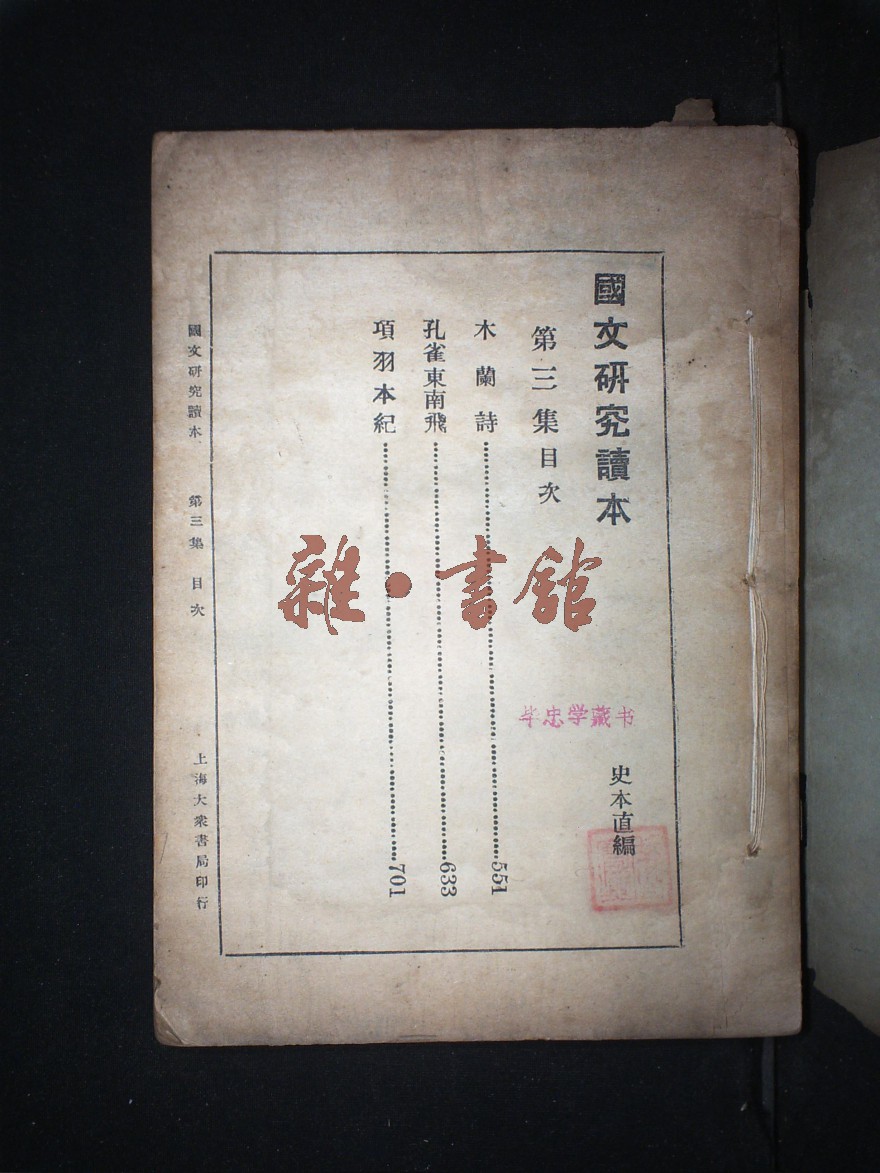 國文研究讀本
史本直編
第三集目次
木蘭詩……551
孔雀東南飛……633
項羽本紀……701
國文研究讀本 第三集 目次 上海大衆書局印行
雜·書館
毕忠学藏书